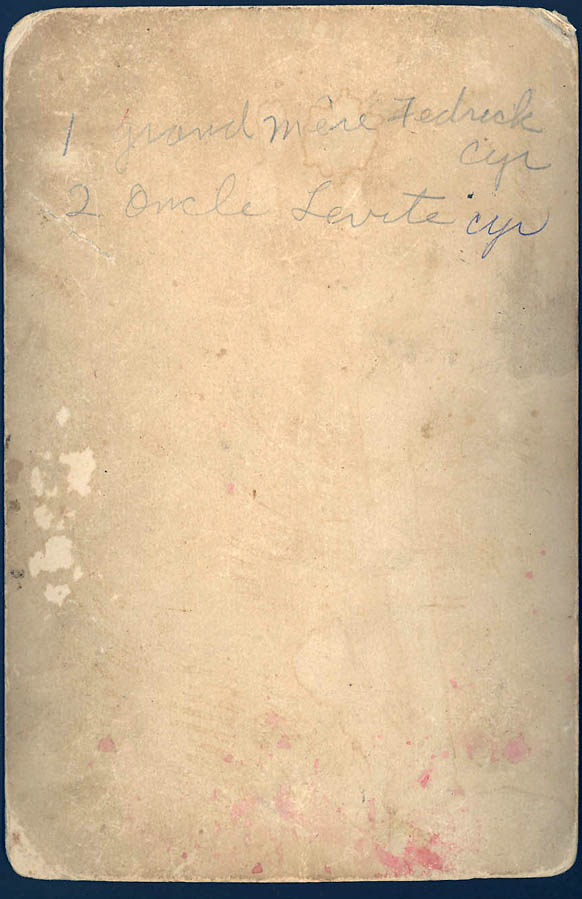 1 grand mère Fedrick
Cyr
2 Oncle Levite cyr